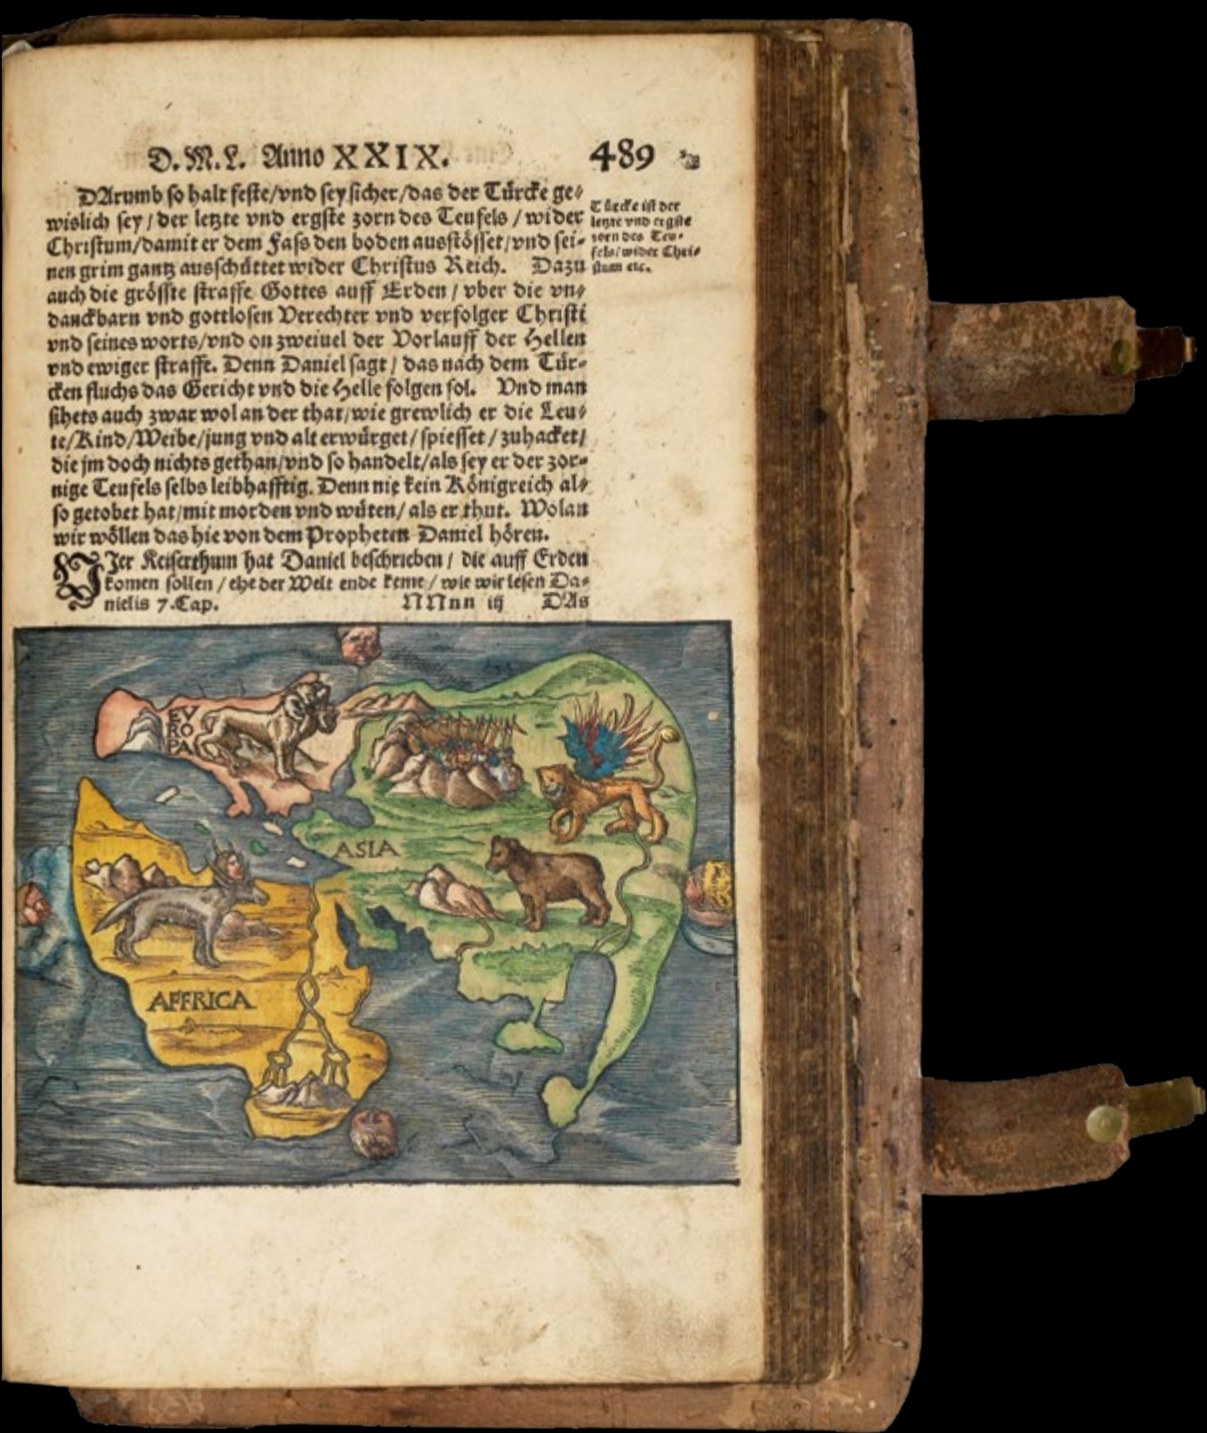 D. M. L. Anno XXIX. 489
DArumb so halt feste/vnd sey sicher/das der Türcke ge⸗
wislich sey / der letzte vnd ergste zorn des Teufels / wider
Christum/damit er dem Fass den boden ausstösset/vnd sei⸗
nen grim gantz ausschüttet wider Christus Reich. Dazu
auch die grösste straffe Gottes auff Erden / vber die vn⸗
danckbarn vnd gottlosen Verechter vnd verfolger Christi
vnd seines worts/vnd on zweiuel der Vorlauff der Hellen
vnd ewiger straffe. Denn Daniel sagt / das nach dem Tür⸗
cken fluchs das Gericht vnd die Helle folgen sol. Vnd man
sihets auch zwar wol an der that/wie grewlich er die Leu⸗
te/Kind/Weibe/jung vnd alt erwürget/ spiesset / zuhacket/
die jm doch nichts gethan/vnd so handelt/als sey er der zor⸗
nige Teufels selbs leibhafftig. Denn nie kein Königreich al⸗
so getobet hat/mit morden vnd wüten/ als er thut. Wolan
wir wöllen das hie von dem Propheten Daniel hören.
Türcke ist der
letzte vnd ergste
zorn des Teu⸗
fels/wider Chri⸗
stum etc.
VJer Keiserthum hat Daniel beschrieben / die auff Erden
komen sollen / ehe der Welt ende keme / wie wir lesen Da⸗
nielis 7. Cap. NNnn iij DAs
EV
RO
PA
ASIA
AFFRICA